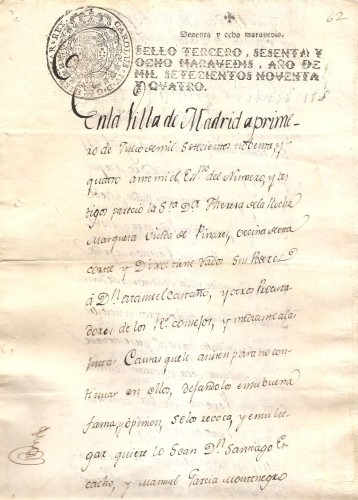 62
Sesenta y ocho maravedis.
SELLO TERCERO, SESENTA Y
OCHO MARAVEDIS, AÑO DE
MIL SETECIENTOS NOVENTA
Y QUATRO.
En la Villa de Madrid a prime-
ro de Julio de mil setecientos noventa y
quatro ante mi el Es.no del Numero, y tes-
tigos pareció la S.ra D.a Theresa de la Rocha
Marquesa Viuda de Pinares, vecina de esta
corte y Dixo tiene dados sus Poderes
á D.n Castaño, y otros Procura-
dores de los R.s Consejos, y mediante a las
justas Causas que le asisten para no con-
tinuar en ellos, dejandolos en su buena
fama y opinion, se los revoca, y en su lu-
gar quiere lo sean D.n Santiago Es-
tacho, y Manuel Garcia Montenegro